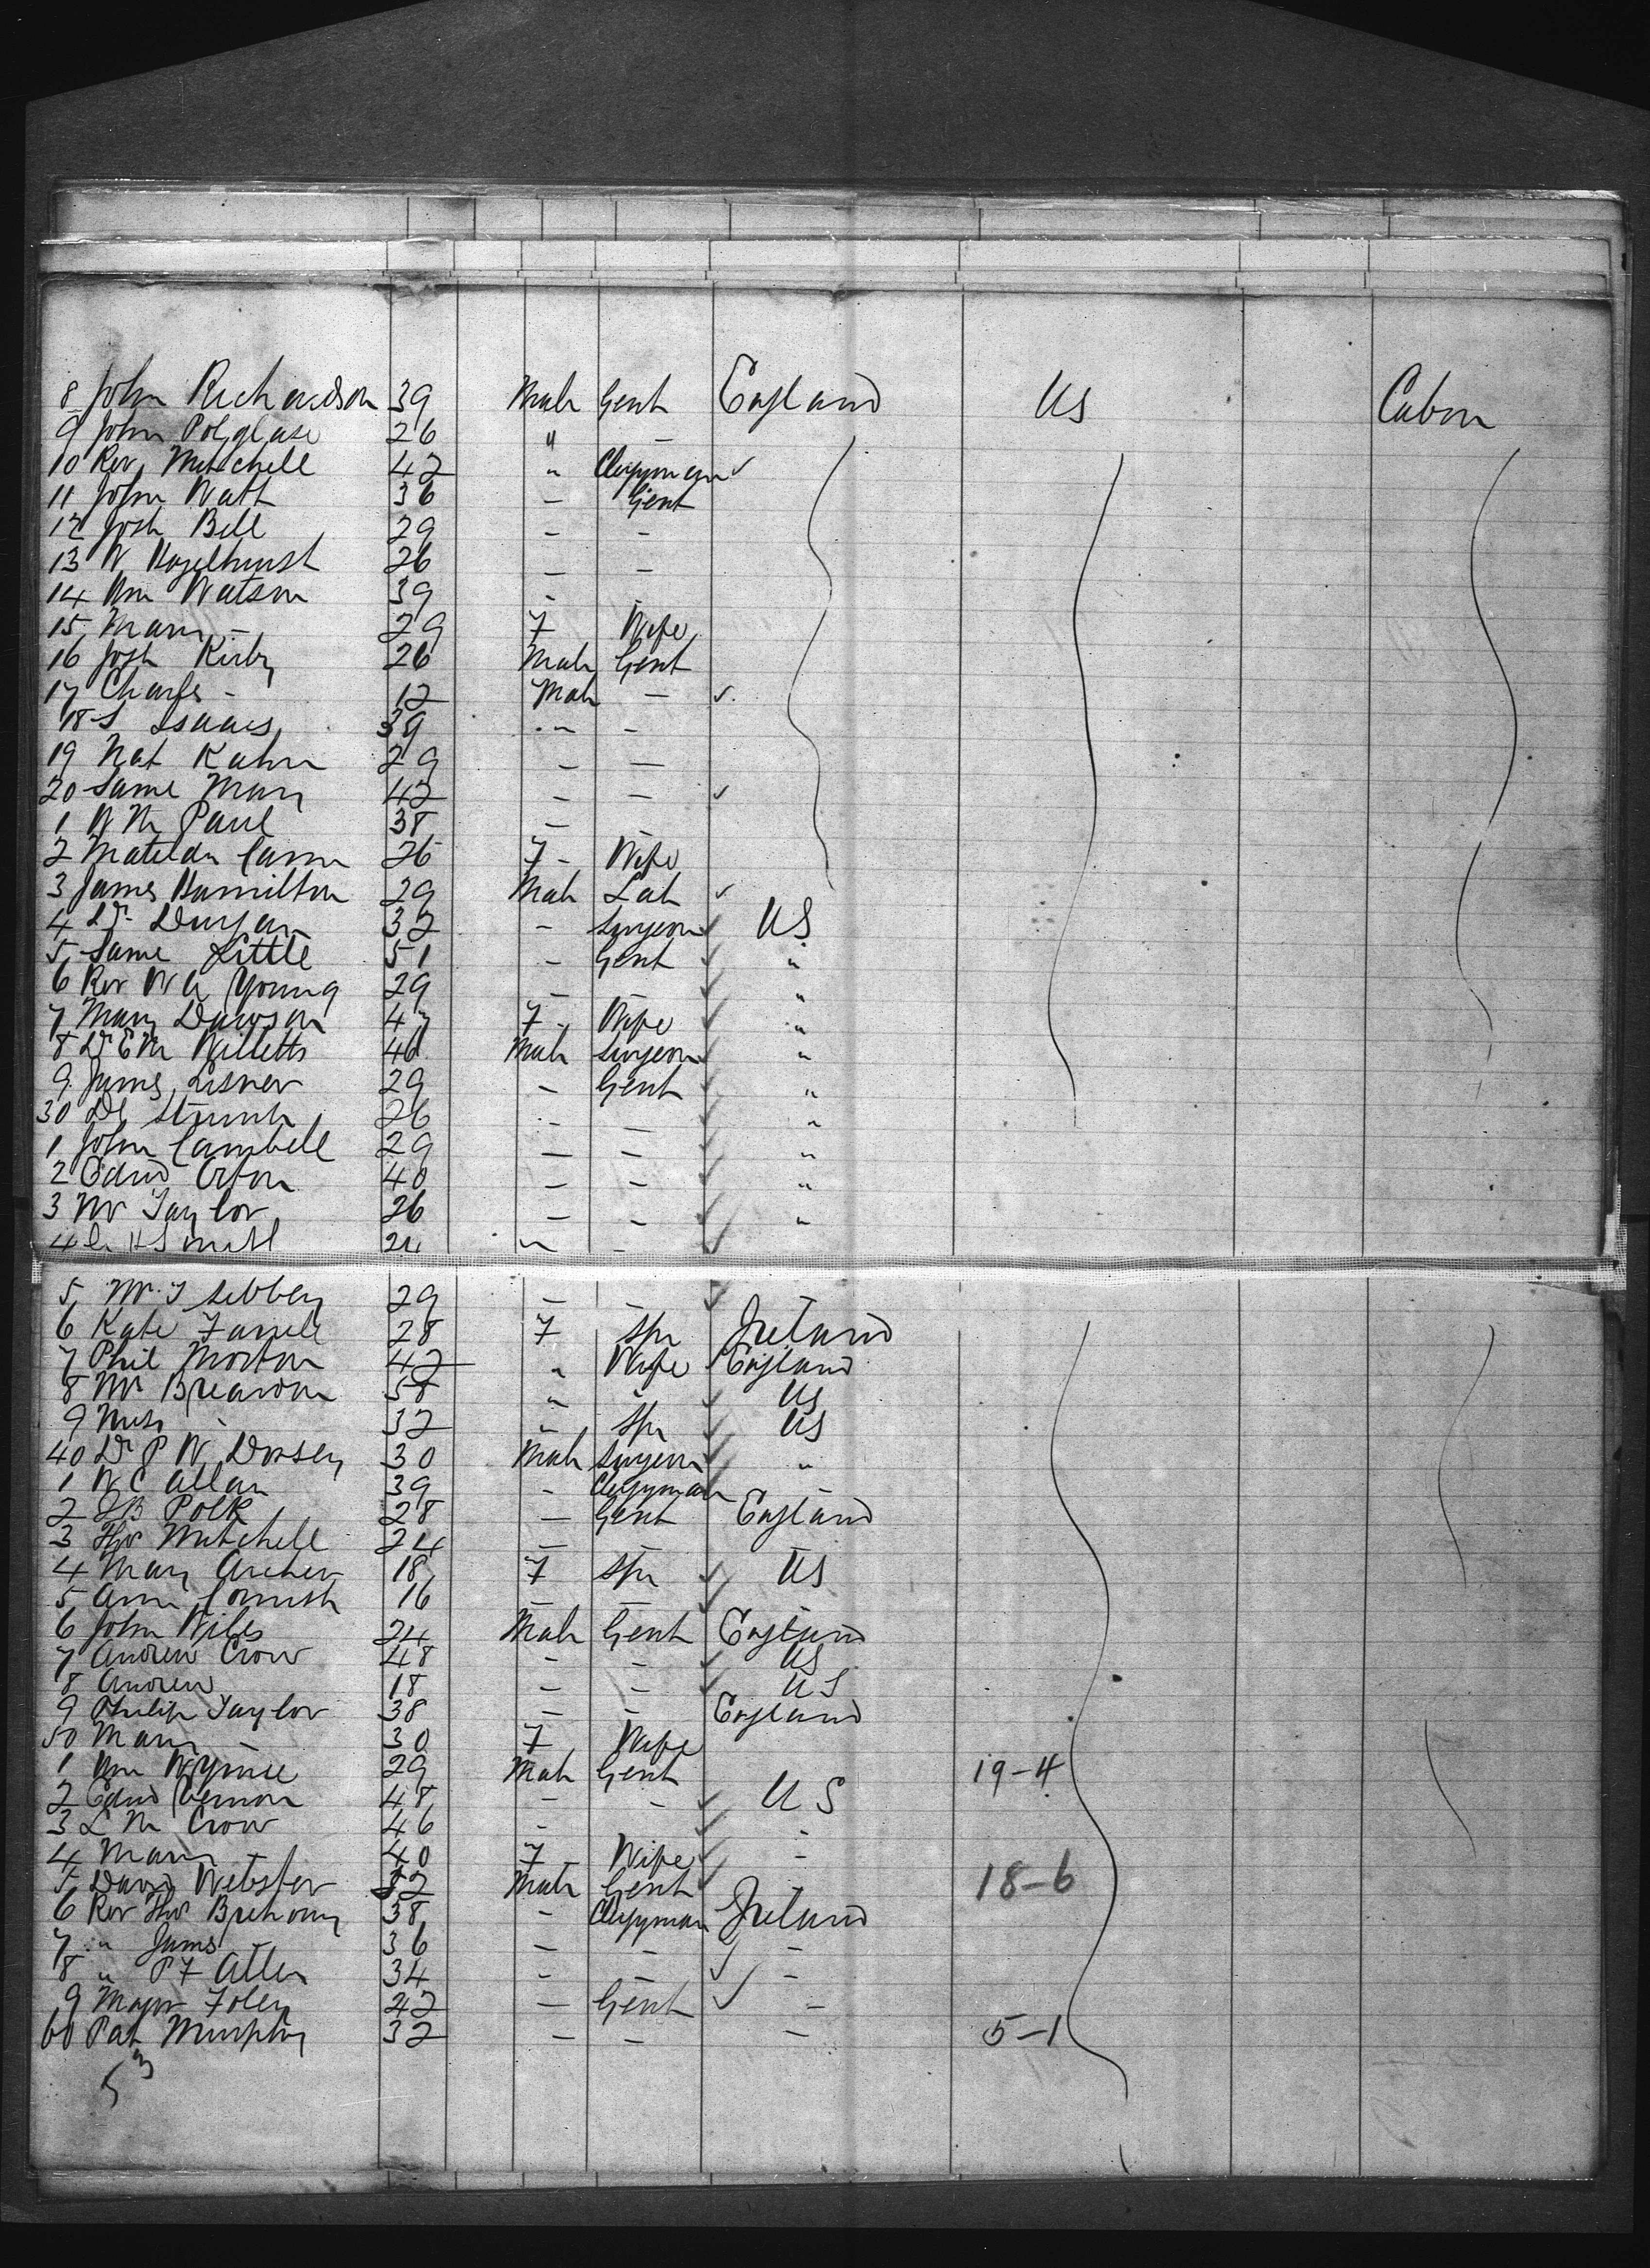 8 John Richardson 39 Male Gent England US Cabin
9 John Polglase 26 " –
10 Rev Mitchell 42 " Clergyman ✓
11 John Watt 36 – Gent
12 Josh Bell 29 – –
13 W Hazelhurst 26 – –
14 Wm Watson 39 –
15 Mary – 29 F Wife
16 Josh Kirby 26 Male Gent
17 Charles – 12 Male – ✓
18 S Isaacs 39 " –
19 Nat Kahn 29 – –
20 Saml Mary 42 – – ✓
1 W M Paul 38 – –
2 Matilda Cann 26 F – Wife
3 James Hamilton 29 Male Lab ✓
4 Dr Durgan 32 – Surgeon ✓ US
5 Saml Little 51 – Gent ✓ "
6 Rev W A Young 29 – – ✓ "
7 Mary Dawson 47 F – Wife ✓ "
8 Dr E M Willetts 46 Male Surgeon ✓ "
9 James Lisner 29 – Gent ✓ "
30 Dl 26 – – ✓ "
1 John Campbell 29 – – ✓ "
2 Edwd Orton 40 – – ✓ "
3 Mr Taylor 26 – – ✓ "
4 24 " – ✓
5 Mr Libbey 29 – – ✓
6 Kate Farrell 28 F Spr Ireland
7 Phil Morton 42 " Wife ✓ England
8 Mrs Breardon 58 " " ✓ US
9 Miss – 32 " Spr ✓ US
40 Dr P W Dorsey 30 Male Surgeon ✓ "
1 W C Allan 39 – Clergyman –
2 J B Polk 28 – Gent England
3 Thos Mitchell 24 – – –
4 Mary Archer 18 F Spr ✓ US
5 Ann Cornish 16 – – ✓ –
6 John Wills 24 Male Gent England
7 Andrew Crow 48 – – ✓ US
8 Andrew 18 – – ✓ US
9 Philip Taylor 38 – – England
50 Mary – 30 F Wife
1 Wm Wynne 29 Male Gent 19-4
2 Edwd Vernon 48 – – ✓ US
3 L M Crow 46 – ✓ –
4 Mary – 40 F Wife ✓ –
5 David Webster 52 Male Gent ✓ – 18-6
6 Rev Thos Brehony 38 – Clergyman Ireland
7 " James – 36 – – ✓ –
8 " P F Allen 34 – – ✓ –
9 Major Foley 42 – Gent ✓ –
60 Pat Murphy 32 – – – 5-1
53